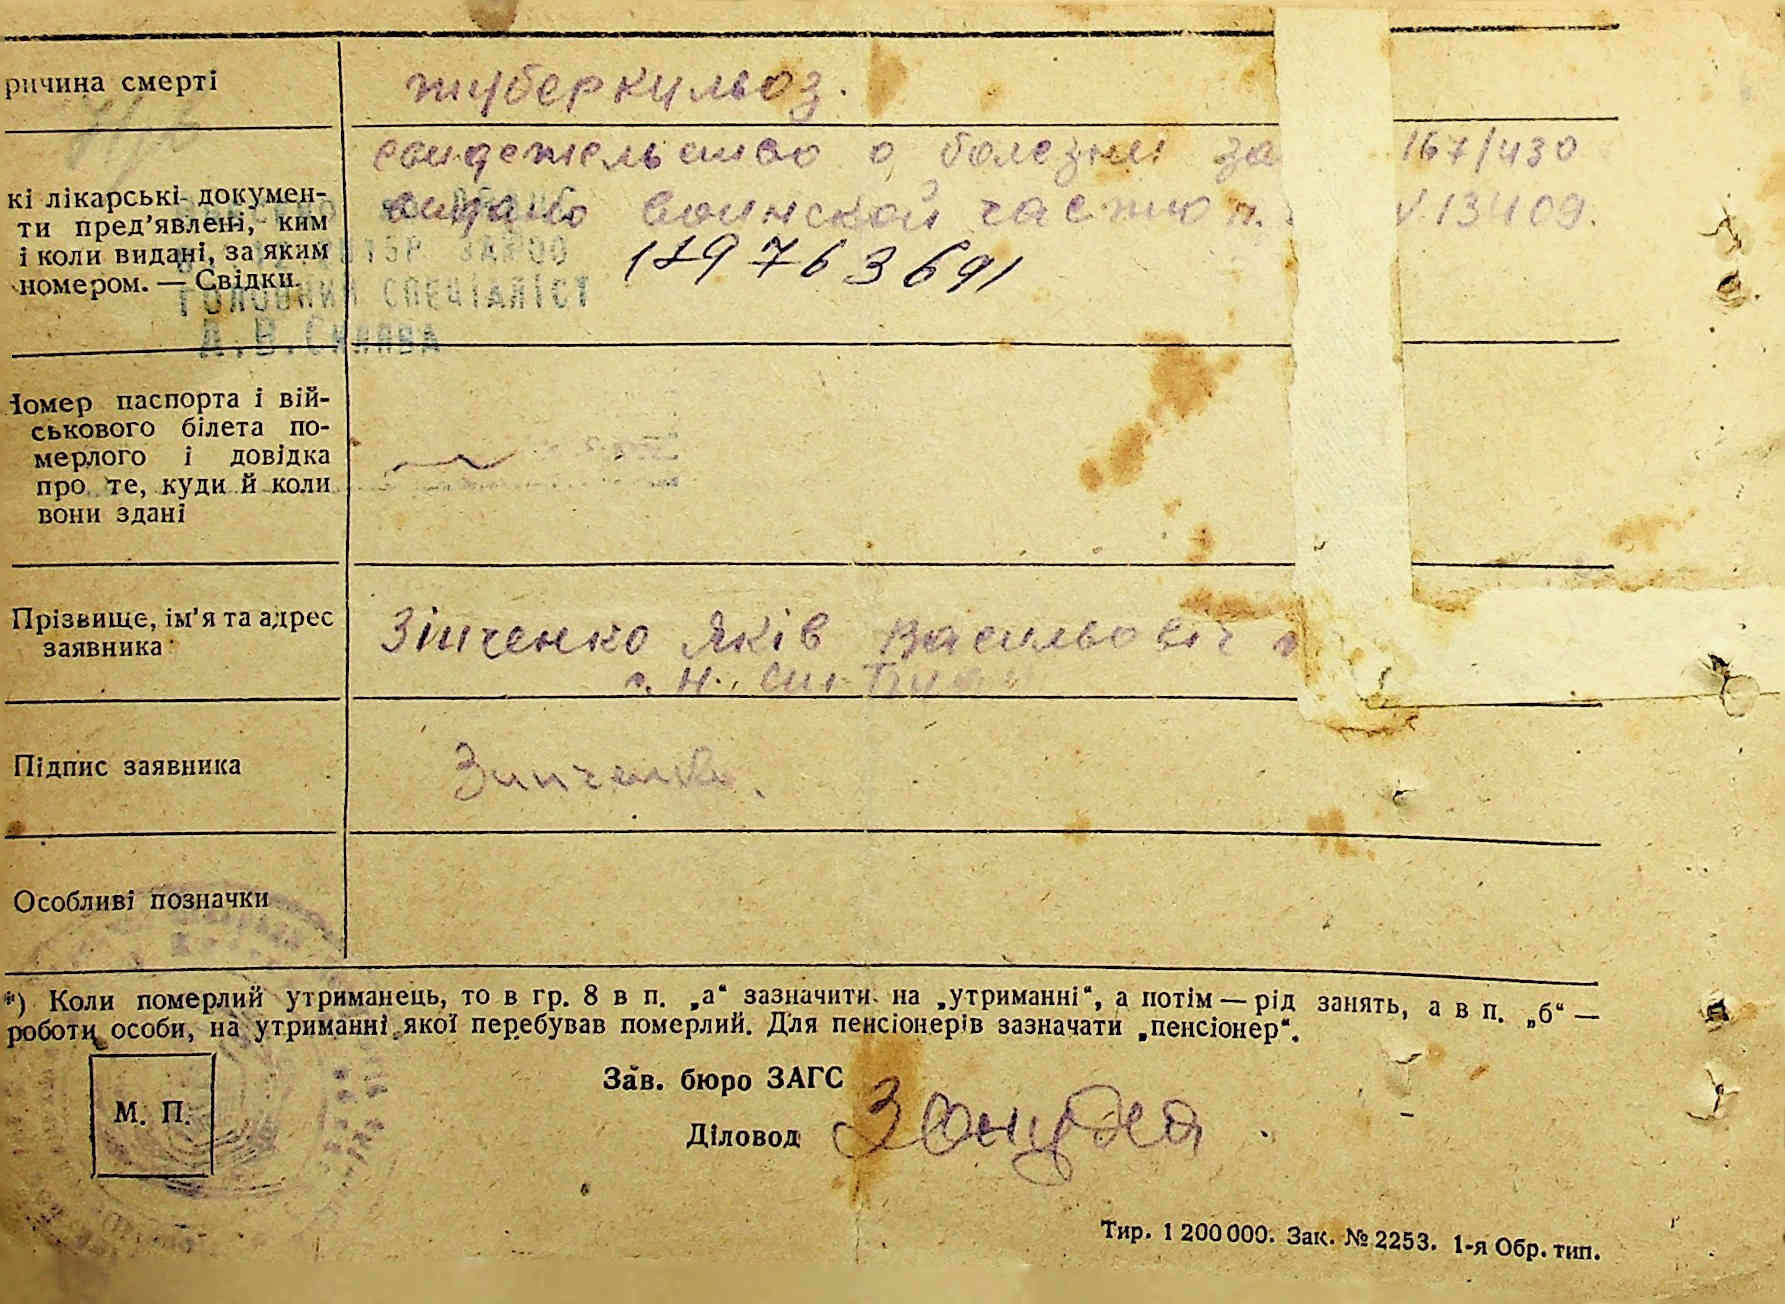 ричина смерті
туберкульоз.
свидетельство о болезни за 167/430
кі лікарські докумен-
ти пред'явлені, ким
і коли видані, за яким
номером. — Свідки.
видано воинской частю п. N 13409.
179763691
ГОЛОВНИЙ СПЕЦІАЛІСТ
Номер паспорта і вій-
ськового білета по-
мерлого і довідка
про те, куди й коли
вони здані
Прізвище, ім'я та адрес
заявника
Зінченко Яків Васильовіч
Підпис заявника
Зинченко.
Особливі позначки
*) Коли померлий утриманець, то в гр. 8 в п. „а“ зазначити на „утриманні“, а потім — рід занять, а в п. „б“ —
роботи особи, на утриманні якої перебував померлий. Для пенсіонерів зазначати „пенсіонер“.
Зав. бюро ЗАГС
М. П.
Діловод
Тир. 1 200 000. Зак. № 2253. 1-я Обр. тип.